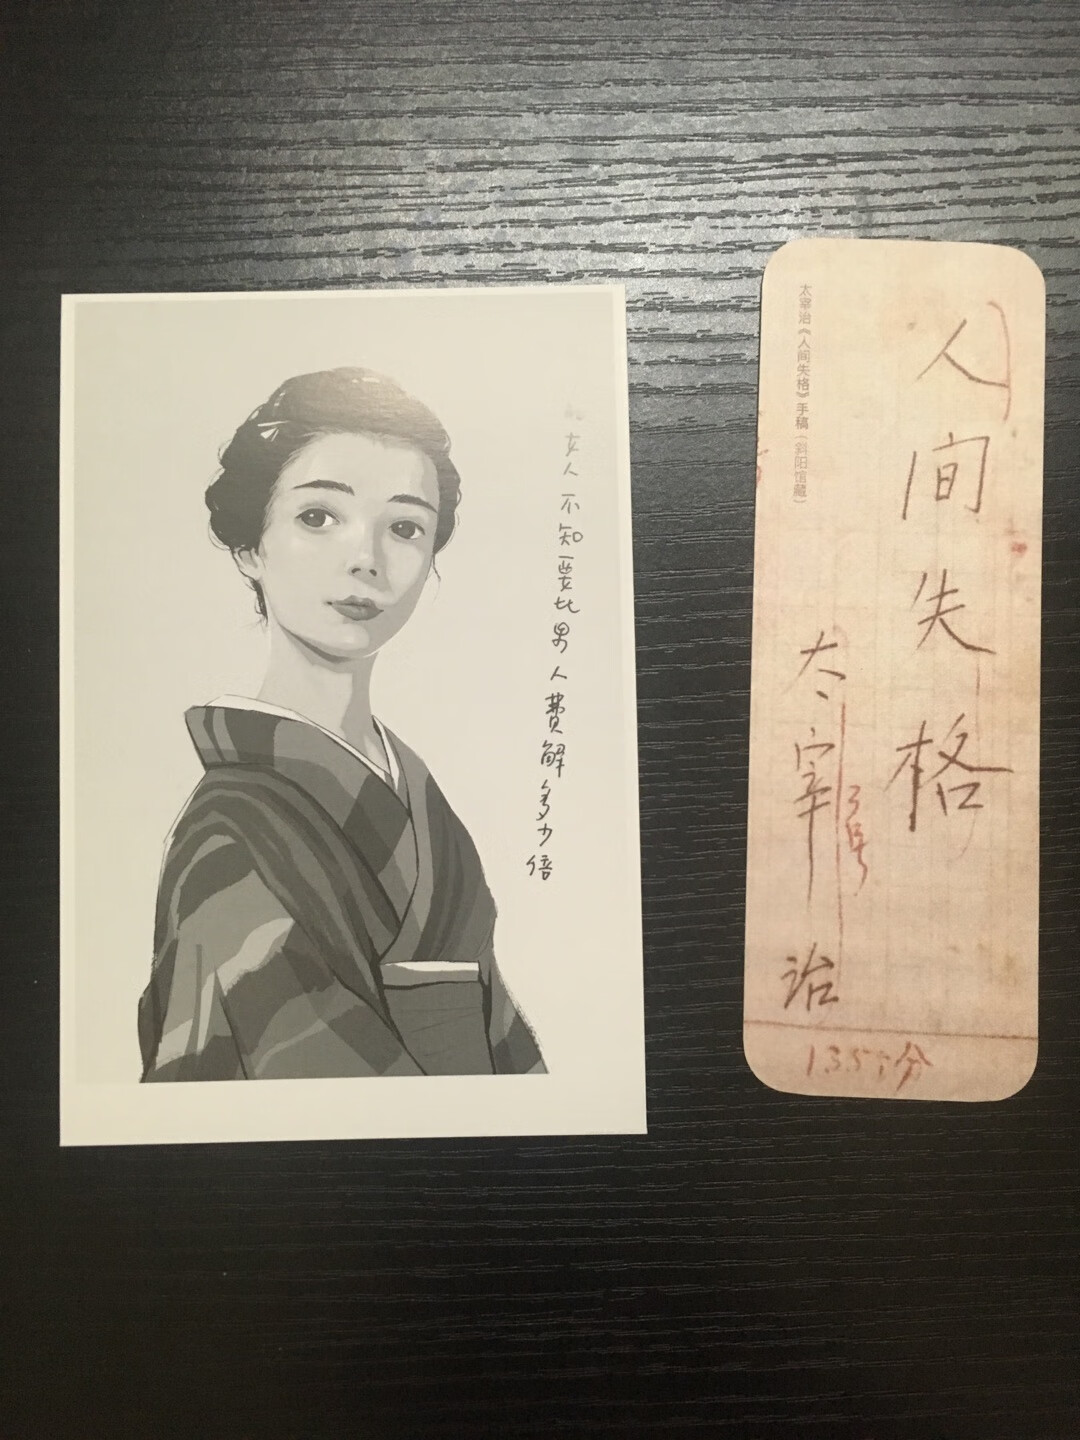 女人不知要比男人費解多少倍
人间失格
太宰治
太宰治《人间失格》手稿（斜阳馆藏）